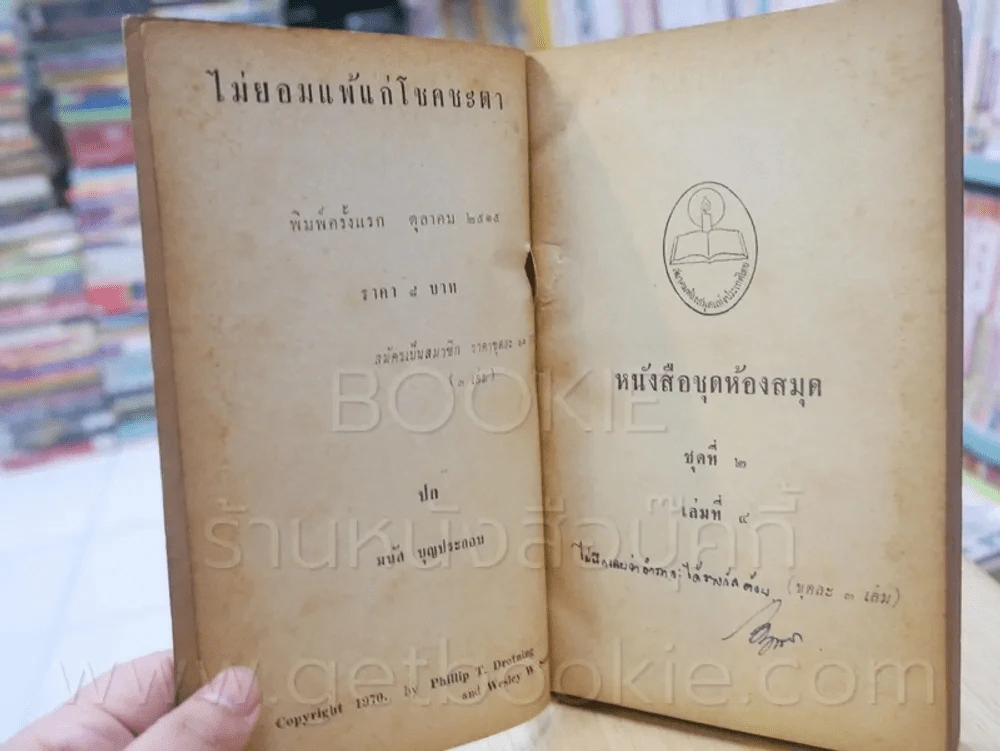 ไม่ยอมแพ้แก่โชคชะตา
พิมพ์ครั้งแรก ตุลาคม ๒๕๑๕
ราคา ๘ บาท
สมัครเป็นสมาชิก ราคาชุดละ
(๓ เล่ม)
ปก
มนัส บุญประกอบ
Copyright 1970. by Phillip T. Drotning
and Wesley W.
สมาคมห้องสมุดแห่งประเทศไทย
หนังสือชุดห้องสมุด
ชุดที่ ๒
เล่มที่ ๔
(ชุดละ ๓ เล่ม)
BOOKIE
ร้านหนังสือบุ๊คกี้
www.getbookie.com